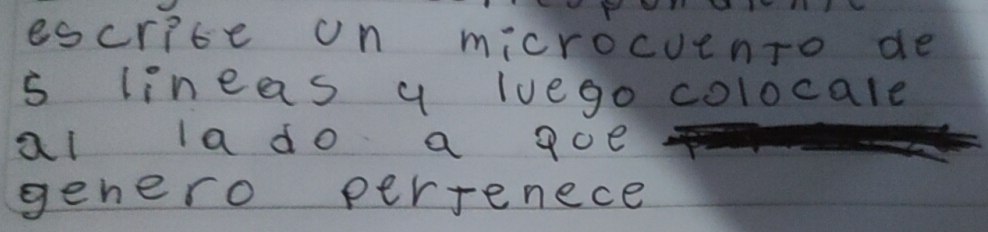 escribe un microcuento de
5 lineas y luego colocale
al lado a que
genero pertenece